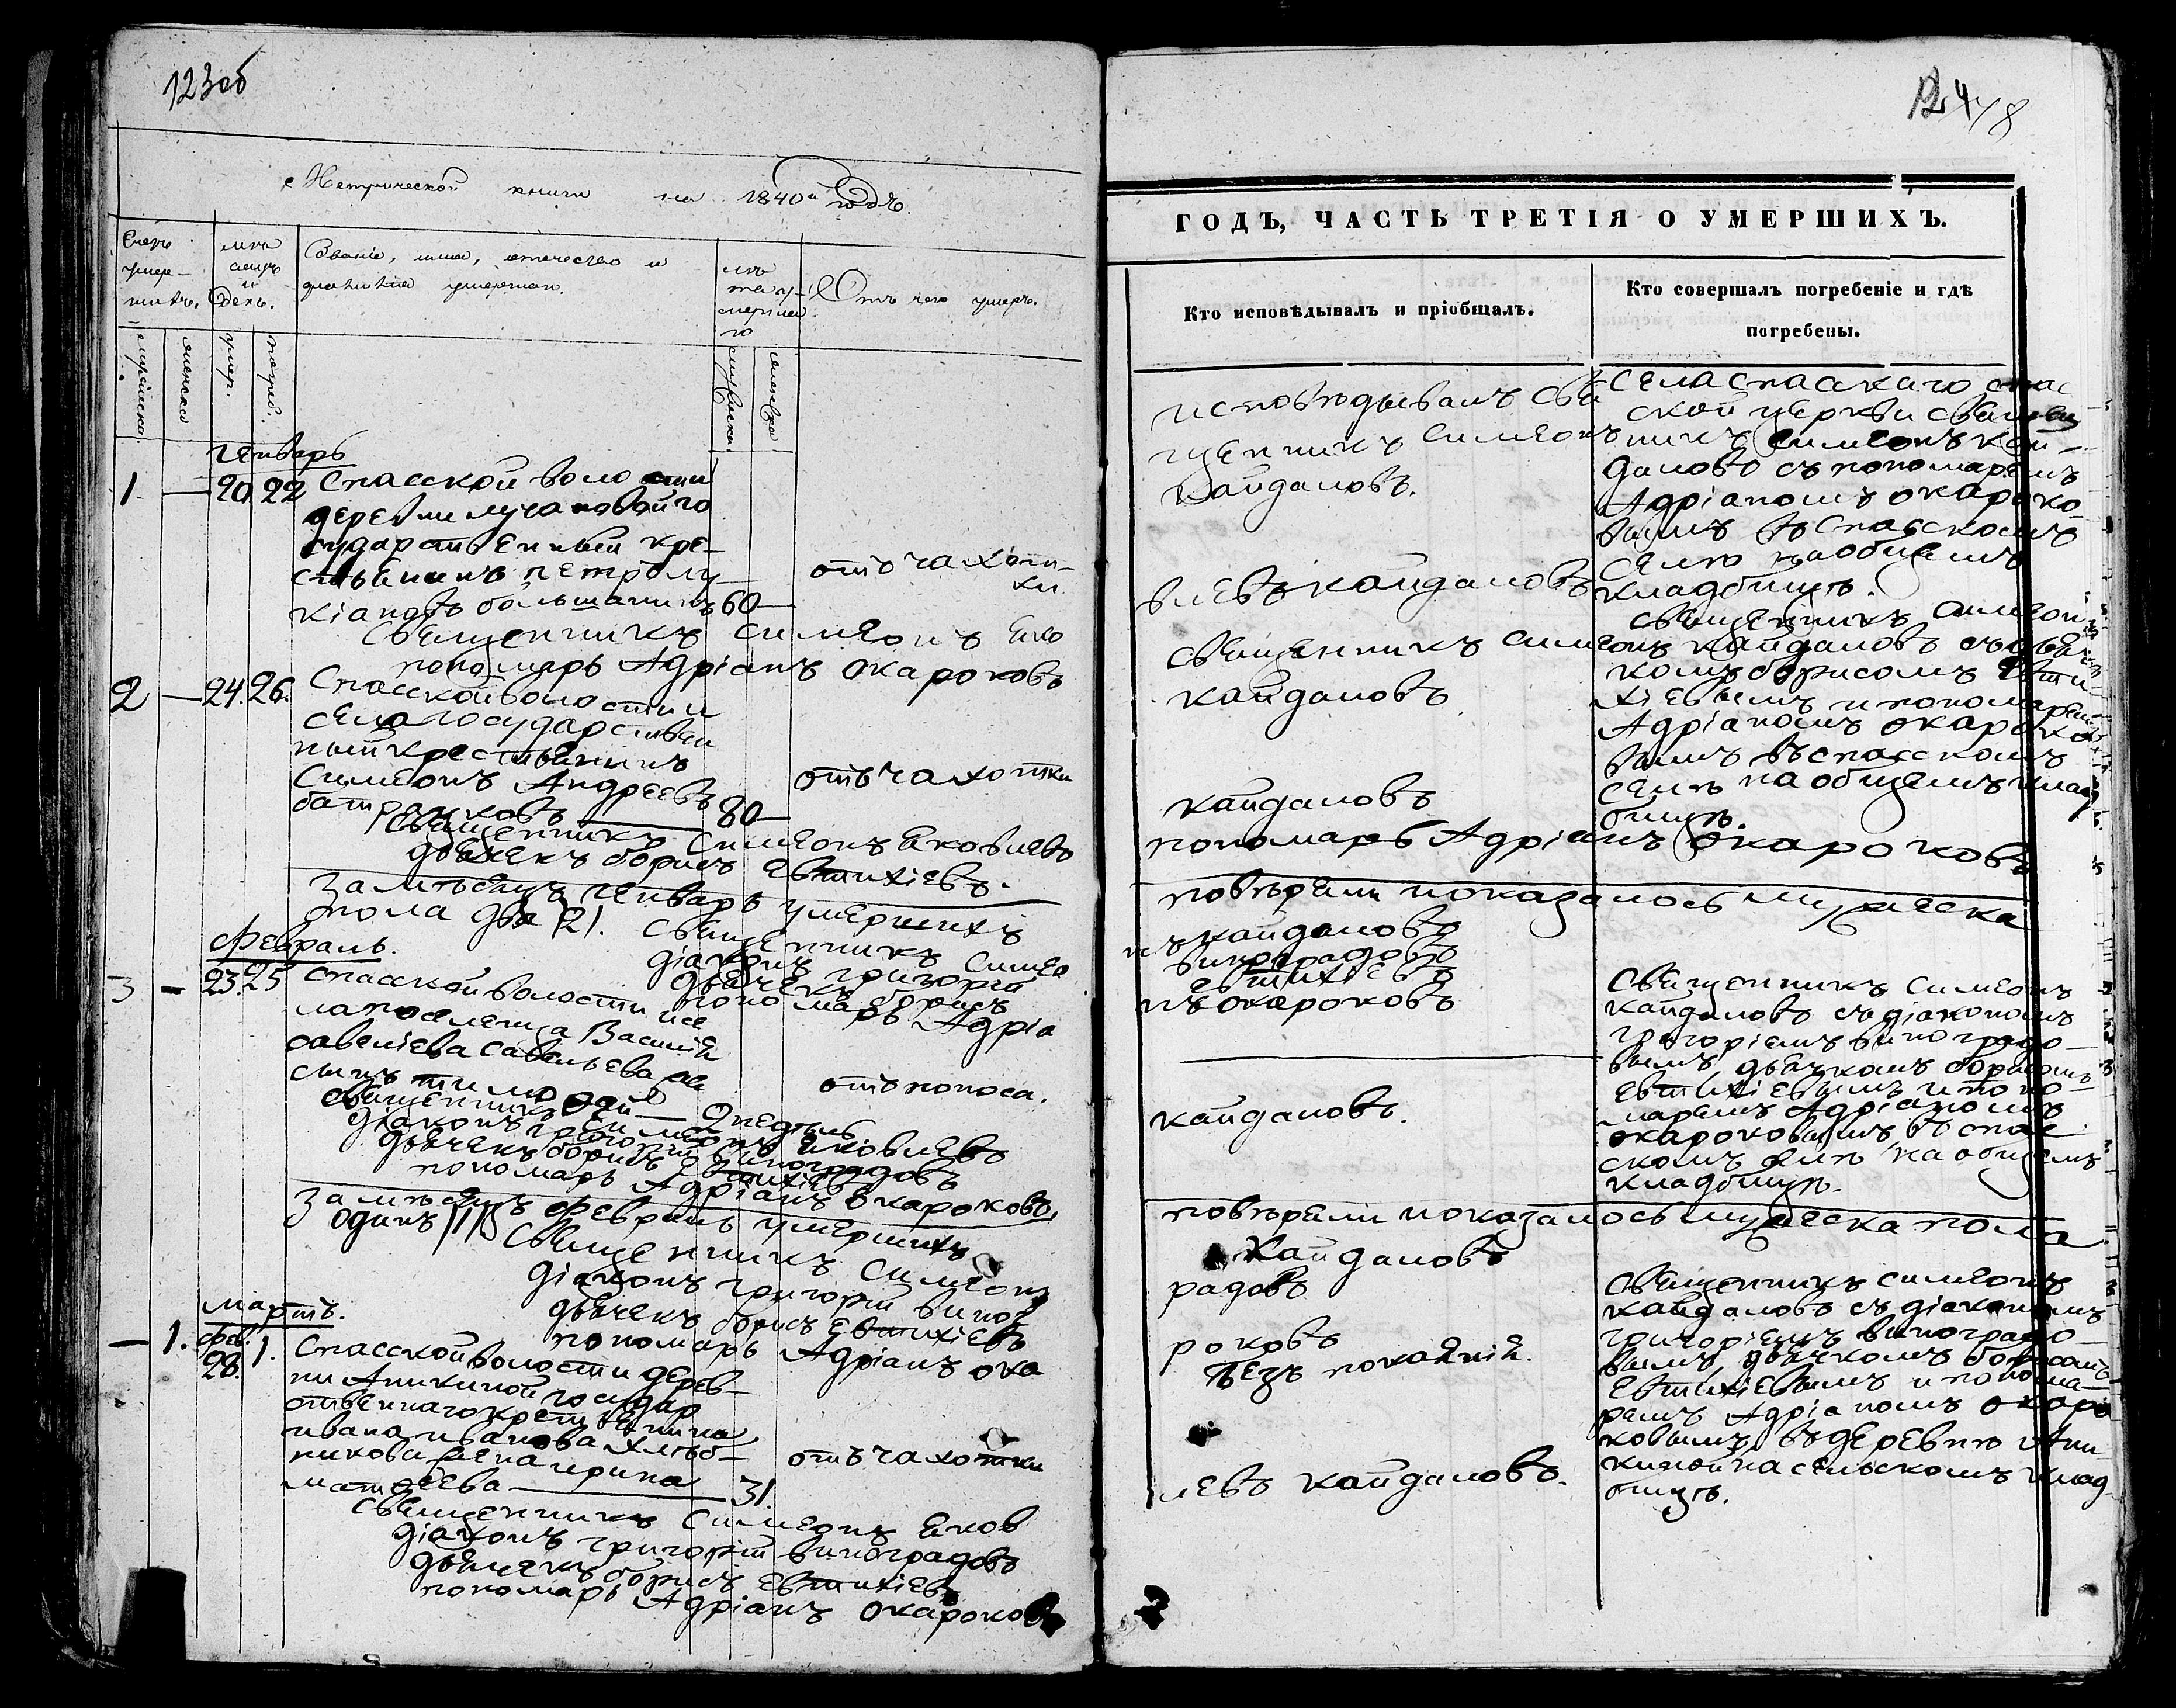 123об
Метрической книги на 1840й годъ.
Счетъ умер-шихъ.
мѣсяцъ и день.
Званіе, имя, отечество и фамилія умершихъ.
лѣта умершаго
Отъ чего умеръ.
мужеска
женска
умер.
погреб.
мужеска
женска
Генварь
1 — 20. 22
Спасской волости
деревни Лучановой го
сударственный кре-
стьянинъ петръ лу
кіановъ большанинъ 60—
отъ чахот-
ки.
Священникъ Симеонъ Яко
пономарь Адріанъ окароковъ
2 — 24. 26.
Спасской волости
села государствен
ный крестьянинъ
Симеонъ Андреевъ
батраковъ — 80—
отъ чахотки
Священникъ Симеонъ Яковлевъ
дьячекъ борисъ Евтихіевъ.
За мѣсяцъ Генварь умершихъ
пола два /2/.
Священникъ Симео
діаконъ григорій
дьячекъ борисъ
пономарь Адріа
Февраль.
3 — 23. 25
Спасской волости се
ла поселенца Василія
савеліева Савельева
сынъ тимофей — 2 недѣль
отъ поноса.
Священникъ Симеонъ Яковлевъ
діаконъ григорій виноградовъ
дьячекъ борисъ Евтихіевъ
пономарь Адріанъ окароковъ.
За мѣсяцъ Февраль умершихъ
одинъ /1/
Священникъ Симеонъ
діаконъ григорій виног
дьячекъ борисъ Евтихіевъ
пономарь Адріанъ ока
мартъ.
— 1. фев. 28. 1.
Спасской волости дерев-
ни Аникиной государ
ственнаго крестьянина
ивана иванова хлѣб-
никова жена ирина
матфеева — 31.
отъ чахотки
Священникъ Симеонъ Яков
діаконъ григорій виноградовъ
дьячекъ борисъ Евтихіевъ
пономарь Адріанъ окароковъ
124
ГОДЪ, ЧАСТЬ ТРЕТІЯ О УМЕРШИХЪ.
Кто исповѣдывалъ и пріобщалъ.
Кто совершалъ погребеніе и гдѣ
погребены.
исповѣдывалъ свя
щенникъ Симеонъ
Кайдаловъ.
влевъ кайдаловъ
Села Спасскаго спас
ской церкви священ
никъ Симеонъ кай-
даловъ съ пономаремъ
Адріаномъ окароко
вымъ въ Спасскомъ
селѣ на общемъ
кладбищѣ.
Священникъ Симеонъ
кайдаловъ
Священникъ Симеон
кайдаловъ съ дьяч
комъ борисомъ Евти
хіевымъ и пономарем
Адріаномъ окароко
вымъ въ спасскомъ
селѣ на общемъ клад
бищѣ.
кайдаловъ
пономарь Адріанъ Окароковъ
повѣряли показалось мужеска
нъ кайдаловъ
виноградовъ
Евтихіевъ
нъ окароковъ
Священникъ Симеонъ
кайдаловъ съ діакономъ
григоріемъ виноградо-
вымъ, дьячкомъ борисомъ
Евтихіевымъ и поно-
маремъ Адріаномъ
окароковымъ, въ спас
скомъ селѣ на общемъ
кладбищѣ.
кайдаловъ.
повѣряли показалось мужеска пола
Кайдаловъ
радовъ
роковъ
Безъ покаянія.
левъ кайдаловъ.
Священникъ Симеонъ
кайдаловъ съ діакономъ
григоріемъ виноградо-
вымъ, дьячкомъ борисомъ
Евтихіевымъ и понома-
ремъ Адріаномъ окаро
ковымъ, въ деревнѣ Ани
киной на сельскомъ клад-
бищѣ.